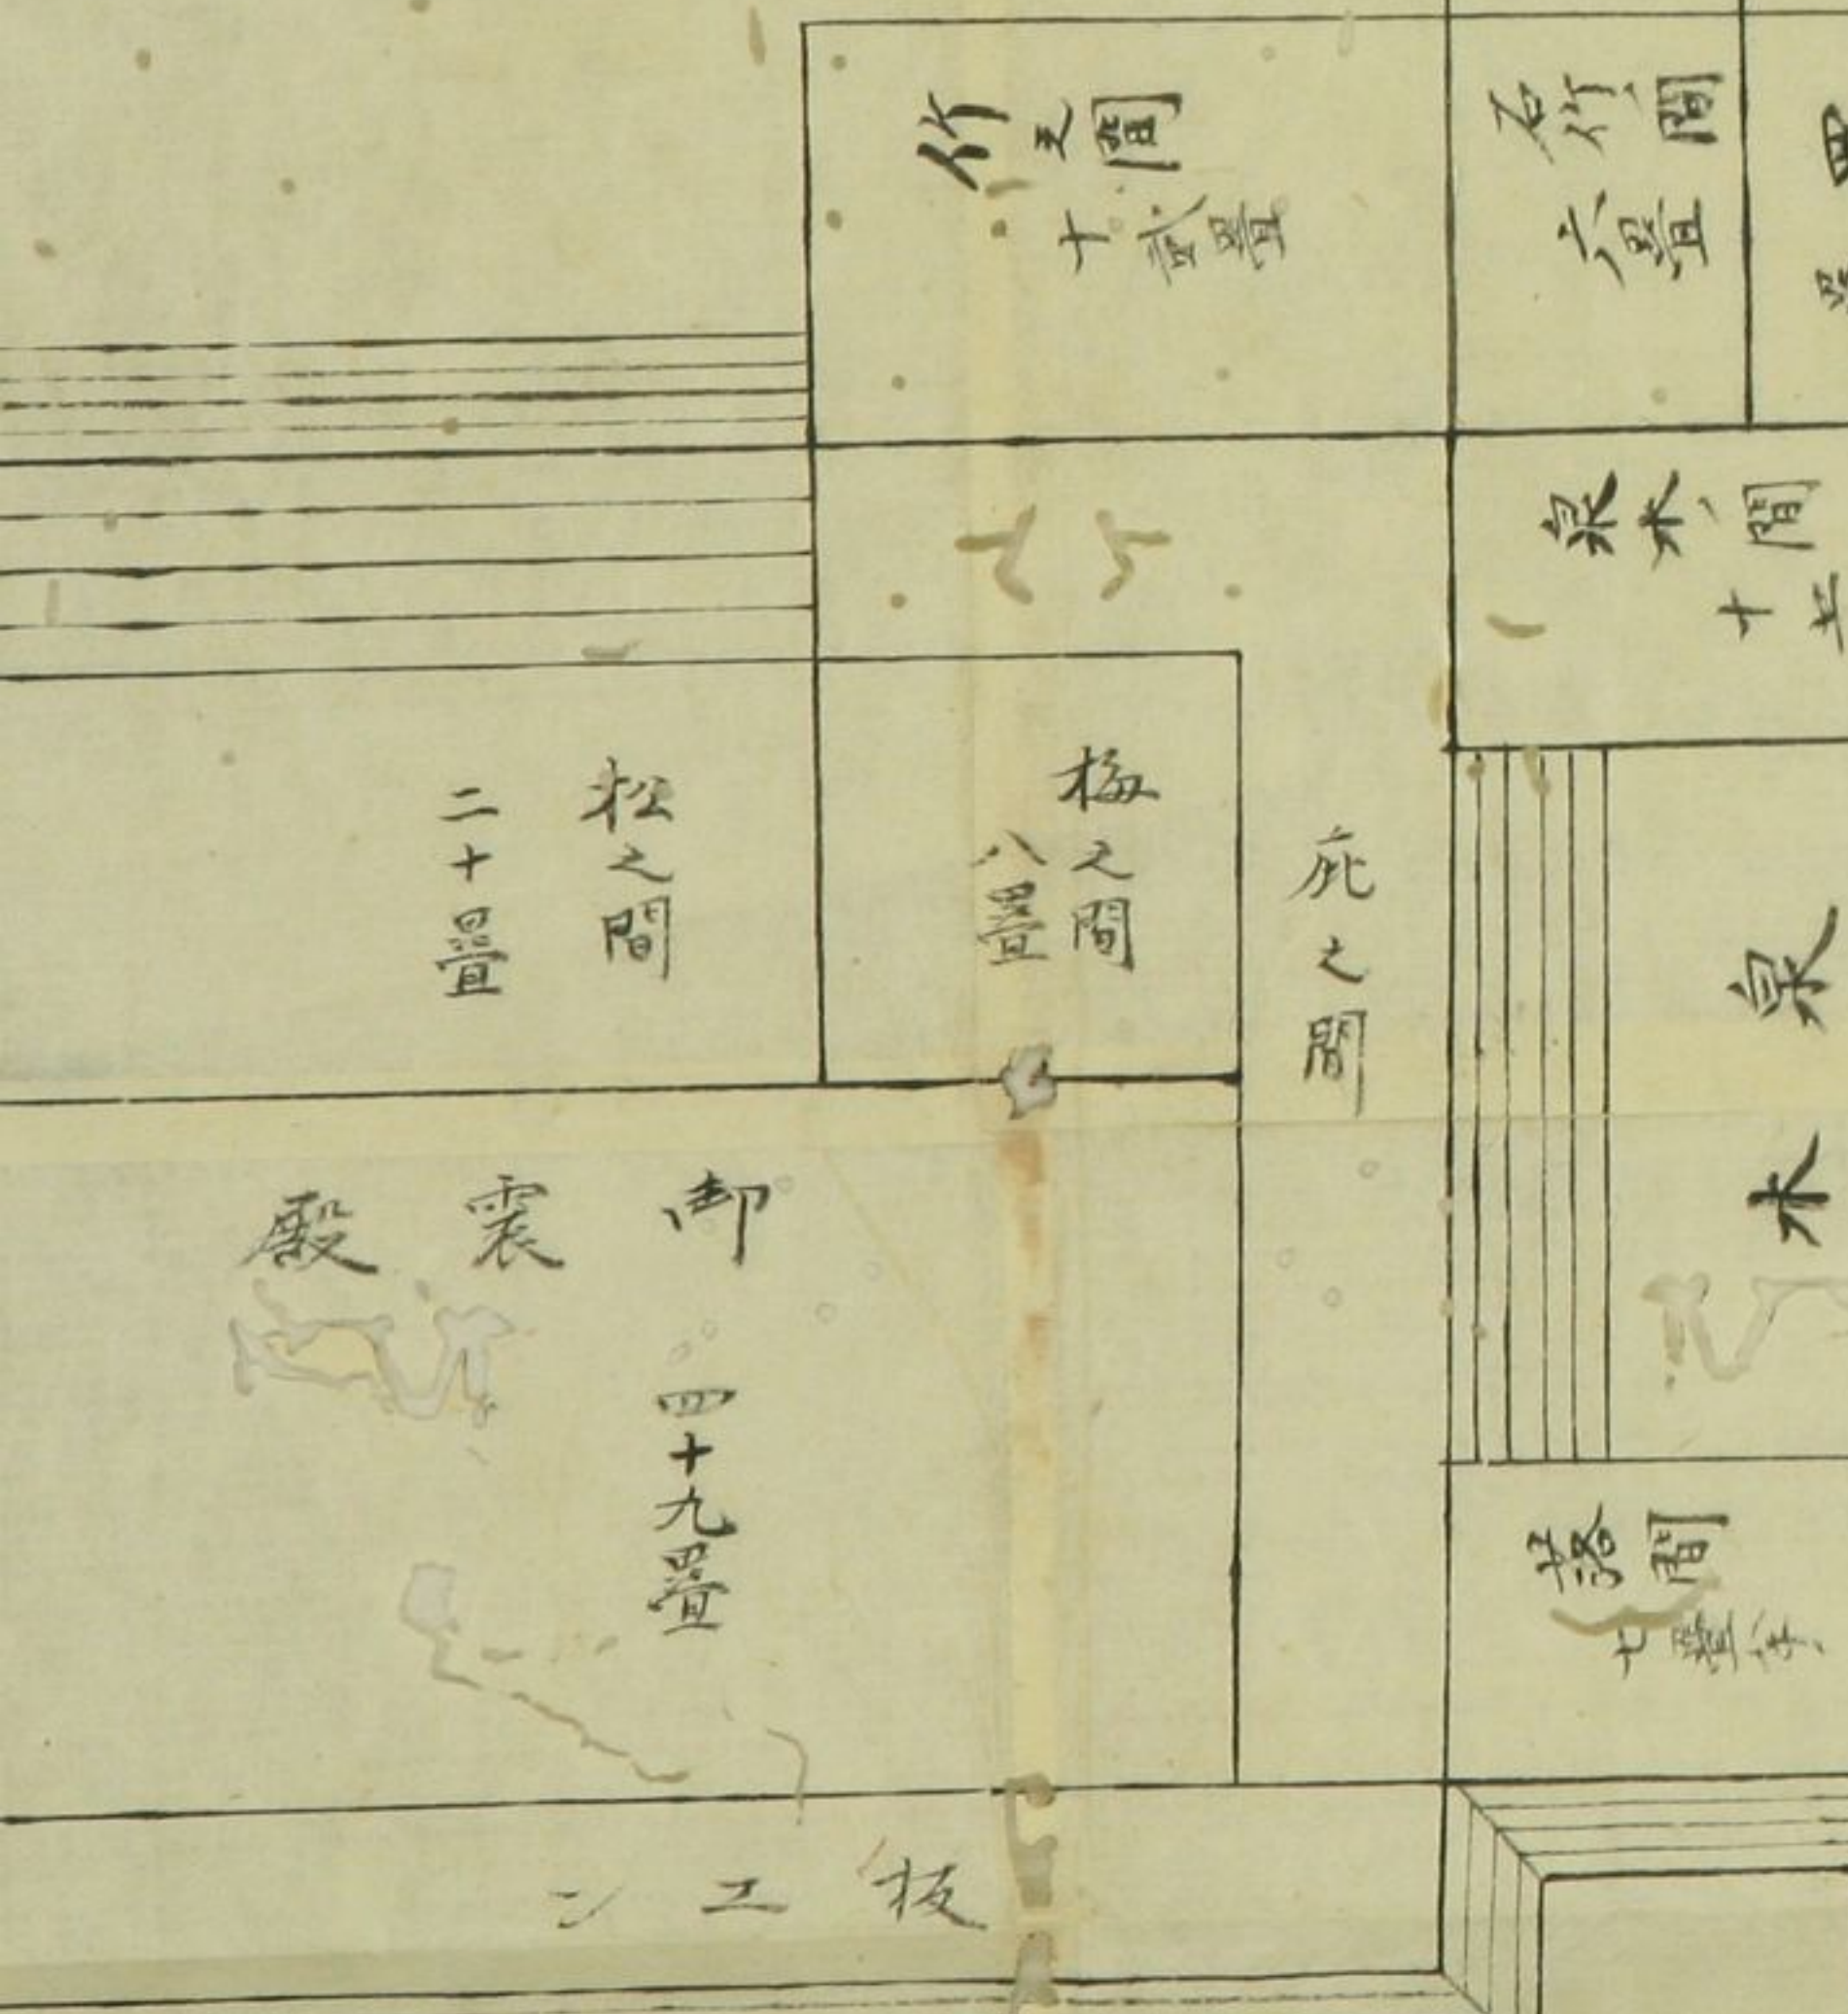 竹之間
十貳畳
石竹ノ間
六畳
四
泉水ノ間
十
松之間
二十畳
梅之間
八畳
庇之間
泉水
御震殿
四十九畳
間
七畳半
板エン